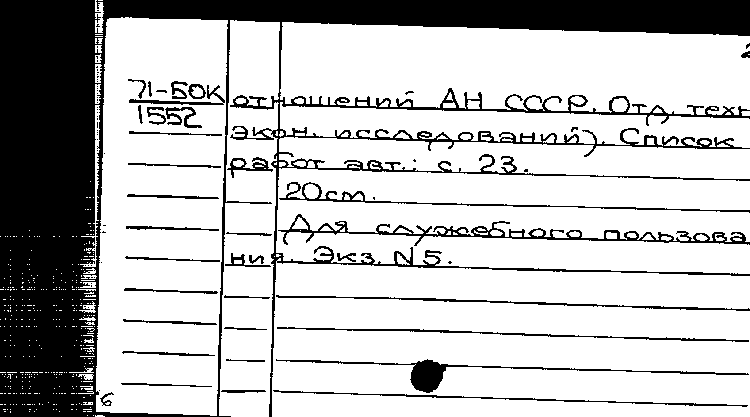 2
71-БОК отношений АН СССР. Отд. техн
1552 экон. исследований). Список
работ авт.: с. 23.
20 cm.
Для служебного пользова
ния. Экз. N5.
6